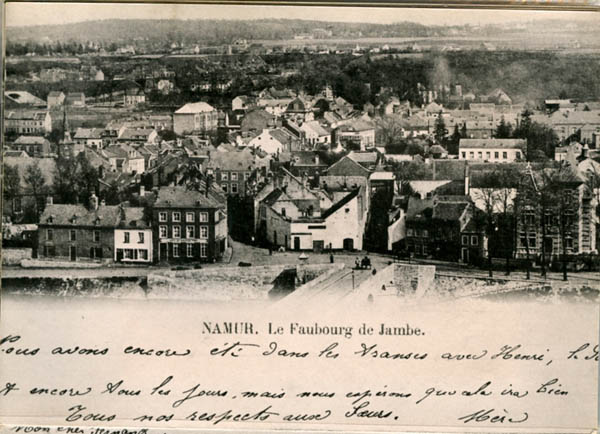 NAMUR. Le Faubourg de Jambe.
Nous avons encore été dans les transes avec Henri, le
A encore tous les jours, mais nous espérons que cela ira bien
Tous nos respects aux Sœurs. Mère
Mon cher